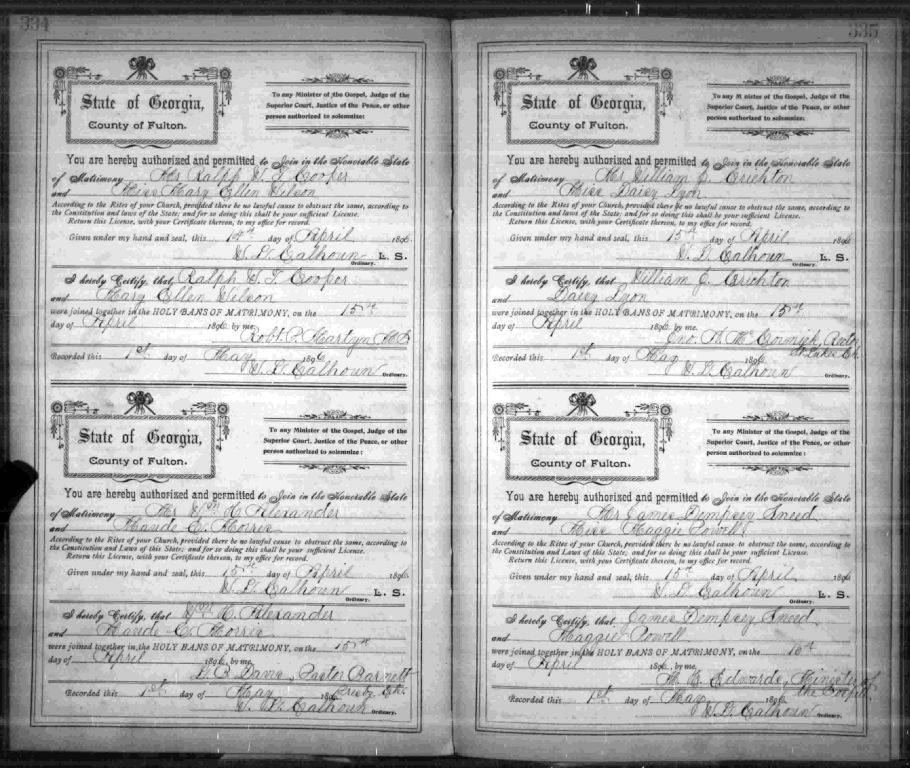 334
State of Georgia,
County of Fulton.
To any Minister of the Gospel, Judge of the
Superior Court, Justice of the Peace, or other
person authorized to solemnize:
You are hereby authorized and permitted to Join in the Honorable State
of Matrimony Mr Ralph T Cooper
and Miss Mary Ellen
According to the Rites of your Church, provided there be no lawful cause to obstruct the same, according to
the Constitution and laws of the State; and for so doing this shall be your sufficient License.
Return this License, with your Certificate thereon, to my office for record.
Given under my hand and seal, this day of April 1896
W. D. Calhoun L. S.
Ordinary.
I hereby Certify, that Ralph T Cooper
and Mary Ellen
were joined together in the HOLY BANS OF MATRIMONY, on the 15th
day of April 1896 by me.
Robt.
Recorded this 1st day of May 1896.
W. D. Calhoun Ordinary.
State of Georgia,
County of Fulton.
To any Minister of the Gospel, Judge of the
Superior Court, Justice of the Peace, or other
person authorized to solemnize:
You are hereby authorized and permitted to Join in the Honorable State
of Matrimony Mr Alexander
and Maude E. Morris
According to the Rites of your Church, provided there be no lawful cause to obstruct the same, according to
the Constitution and Laws of this State; and for so doing this shall be your sufficient License.
Return this License, with your Certificate thereon, to my office for record.
Given under my hand and seal, this 15th day of April 1896
W. D. Calhoun L. S.
Ordinary.
I hereby Certify, that Alexander
and Maude E. Morris
were joined together in the HOLY BANS OF MATRIMONY, on the 15th
day of April 1896, by me,
Pastor Barnett
Presby. Ch.
Recorded this 1st day of May 1896
W. D. Calhoun Ordinary.
335
State of Georgia,
County of Fulton.
To any Minister of the Gospel, Judge of the
Superior Court, Justice of the Peace, or other
person authorized to solemnize:
You are hereby authorized and permitted to Join in the Honorable State
of Matrimony Mr William J. Crichton
and Miss Daisy Lyon
According to the Rites of your Church, provided there be no lawful cause to obstruct the same, according to
the Constitution and laws of the State; and for so doing this shall be your sufficient License.
Return this License, with your Certificate thereon, to my office for record.
Given under my hand and seal, this 15th day of April 1896
W. D. Calhoun L. S.
Ordinary.
I hereby Certify, that William J. Crichton
and Daisy Lyon
were joined together in the HOLY BANS OF MATRIMONY, on the 15th
day of April 1896, by me.
Jno. McCormick, Rector
St Lukes Ch.
Recorded this 1st day of May 1896.
W. D. Calhoun Ordinary.
State of Georgia,
County of Fulton.
To any Minister of the Gospel, Judge of the
Superior Court, Justice of the Peace, or other
person authorized to solemnize:
You are hereby authorized and permitted to Join in the Honorable State
of Matrimony Mr James Dempsey Sneed
and Miss Maggie Powell
According to the Rites of your Church, provided there be no lawful cause to obstruct the same, according to
the Constitution and Laws of this State; and for so doing this shall be your sufficient License.
Return this License, with your Certificate thereon, to my office for record.
Given under my hand and seal, this 15th day of April 1896
W. D. Calhoun L. S.
Ordinary.
I hereby Certify, that James Dempsey Sneed
and Maggie Powell
were joined together in the HOLY BANS OF MATRIMONY, on the
day of April 1896, by me.
Edwards, Minister of
the Gospel
Recorded this 1st day of May 1896.
W. D. Calhoun Ordinary.